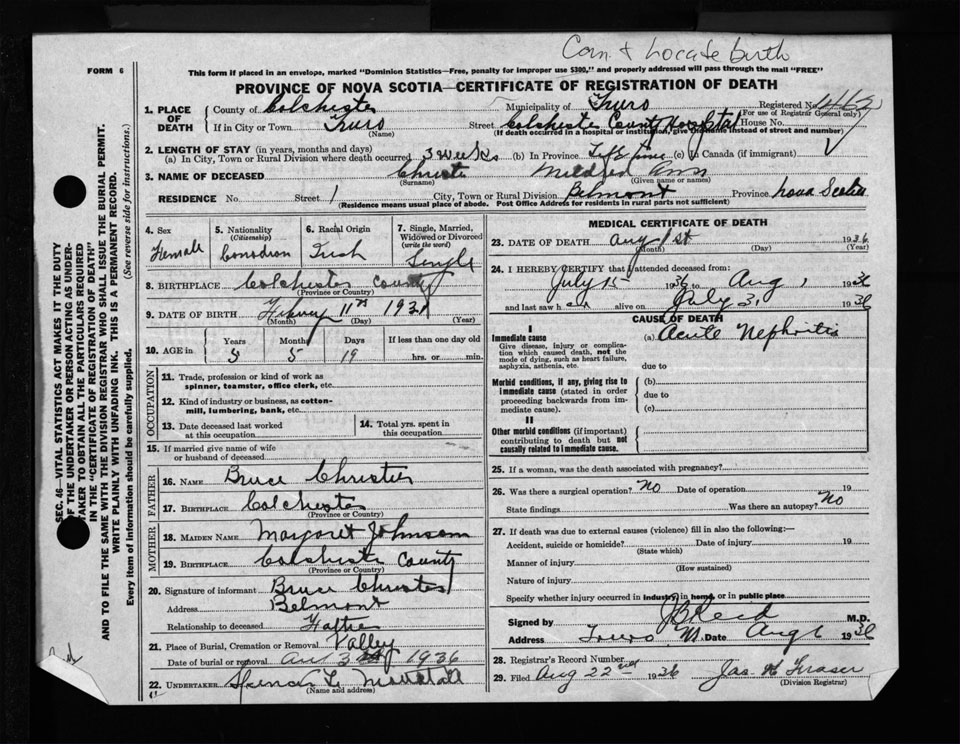 Corr. & Locate birth
FORM 6
This form if placed in an envelope, marked "Dominion Statistics—Free, penalty for improper use $300," and properly addressed will pass through the mail "FREE"
PROVINCE OF NOVA SCOTIA—CERTIFICATE OF REGISTRATION OF DEATH
SEC. 46—VITAL STATISTICS ACT MAKES IT THE DUTY
OF THE UNDERTAKER OR PERSON ACTING AS UNDER-
TAKER TO OBTAIN ALL THE PARTICULARS REQUIRED
IN THE "CERTIFICATE OF REGISTRATION OF DEATH"
AND TO FILE THE SAME WITH THE DIVISION REGISTRAR WHO SHALL ISSUE THE BURIAL PERMIT.
WRITE PLAINLY WITH UNFADING INK. THIS IS A PERMANENT RECORD.
Every item of information should be carefully supplied. (See reverse side for instructions.)
1. PLACE OF DEATH
County of Colchester Municipality of Truro Registered No. 1462
(For use of Registrar General only)
If in City or Town Truro Street Colchester County Hospital House No.
(Name) (If death occurred in a hospital or institution, give its name instead of street and number)
2. LENGTH OF STAY (in years, months and days)
(a) In City, Town or Rural Division where death occurred 3 weeks (b) In Province Life time (c) In Canada (if immigrant)
3. NAME OF DECEASED Christie Mildred Ann
(Surname) (Given name or names)
RESIDENCE No. Street City, Town or Rural Division Belmont Province Nova Scotia
(Residence means usual place of abode. Post Office Address for residents in rural parts not sufficient)
4. Sex
Female
5. Nationality
(Citizenship)
Canadian
6. Racial Origin
Irish
7. Single, Married,
Widowed or Divorced
(write the word)
Single
8. BIRTHPLACE Colchester County
(Province or Country)
9. DATE OF BIRTH 11th 1931
(Month) (Day) (Year)
10. AGE in Years Months Days If less than one day old
5 5 19 hrs. or min.
OCCUPATION
11. Trade, profession or kind of work as
spinner, teamster, office clerk, etc.
12. Kind of industry or business, as cotton-
mill, lumbering, bank, etc.
13. Date deceased last worked
at this occupation
14. Total yrs. spent in
this occupation
15. If married give name of wife
or husband of deceased
FATHER
16. NAME Bruce Christie
17. BIRTHPLACE Colchester
(Province or Country)
MOTHER
18. MAIDEN NAME Margaret Johnson
19. BIRTHPLACE Colchester County
(Province or Country)
20. Signature of informant Bruce Christie
Address Belmont
Relationship to deceased Father
21. Place of Burial, Cremation or Removal Valley
Date of burial or removal 3 1936
22. UNDERTAKER Spencer L.
(Name and address)
MEDICAL CERTIFICATE OF DEATH
23. DATE OF DEATH Aug 1st 1936
(Month) (Day) (Year)
24. I HEREBY CERTIFY that I attended deceased from:
July 15 1936 to Aug 1 1936
and last saw h alive on July 31 1936
CAUSE OF DEATH
I
Immediate cause (a) Acute Nephritis
Give disease, injury or complica-
tion which caused death, not the
mode of dying, such as heart failure,
asphyxia, asthenia, etc. due to
Morbid conditions, if any, giving rise to
immediate cause (stated in order
proceeding backwards from im-
mediate cause).
(b)
due to
(c)
II
Other morbid conditions (if important)
contributing to death but not
causally related to immediate cause.
25. If a woman, was the death associated with pregnancy?
26. Was there a surgical operation? No Date of operation 19
State findings Was there an autopsy? No
27. If death was due to external causes (violence) fill in also the following:—
Accident, suicide or homicide? Date of injury 19
(State which)
Manner of injury
(How sustained)
Nature of injury
Specify whether injury occurred in industry, in home, or in public place
Signed by Reed M.D.
Address Truro Date Aug 1936
28. Registrar's Record Number
29. Filed Aug 22nd 1936 Jas Fraser
(Division Registrar)